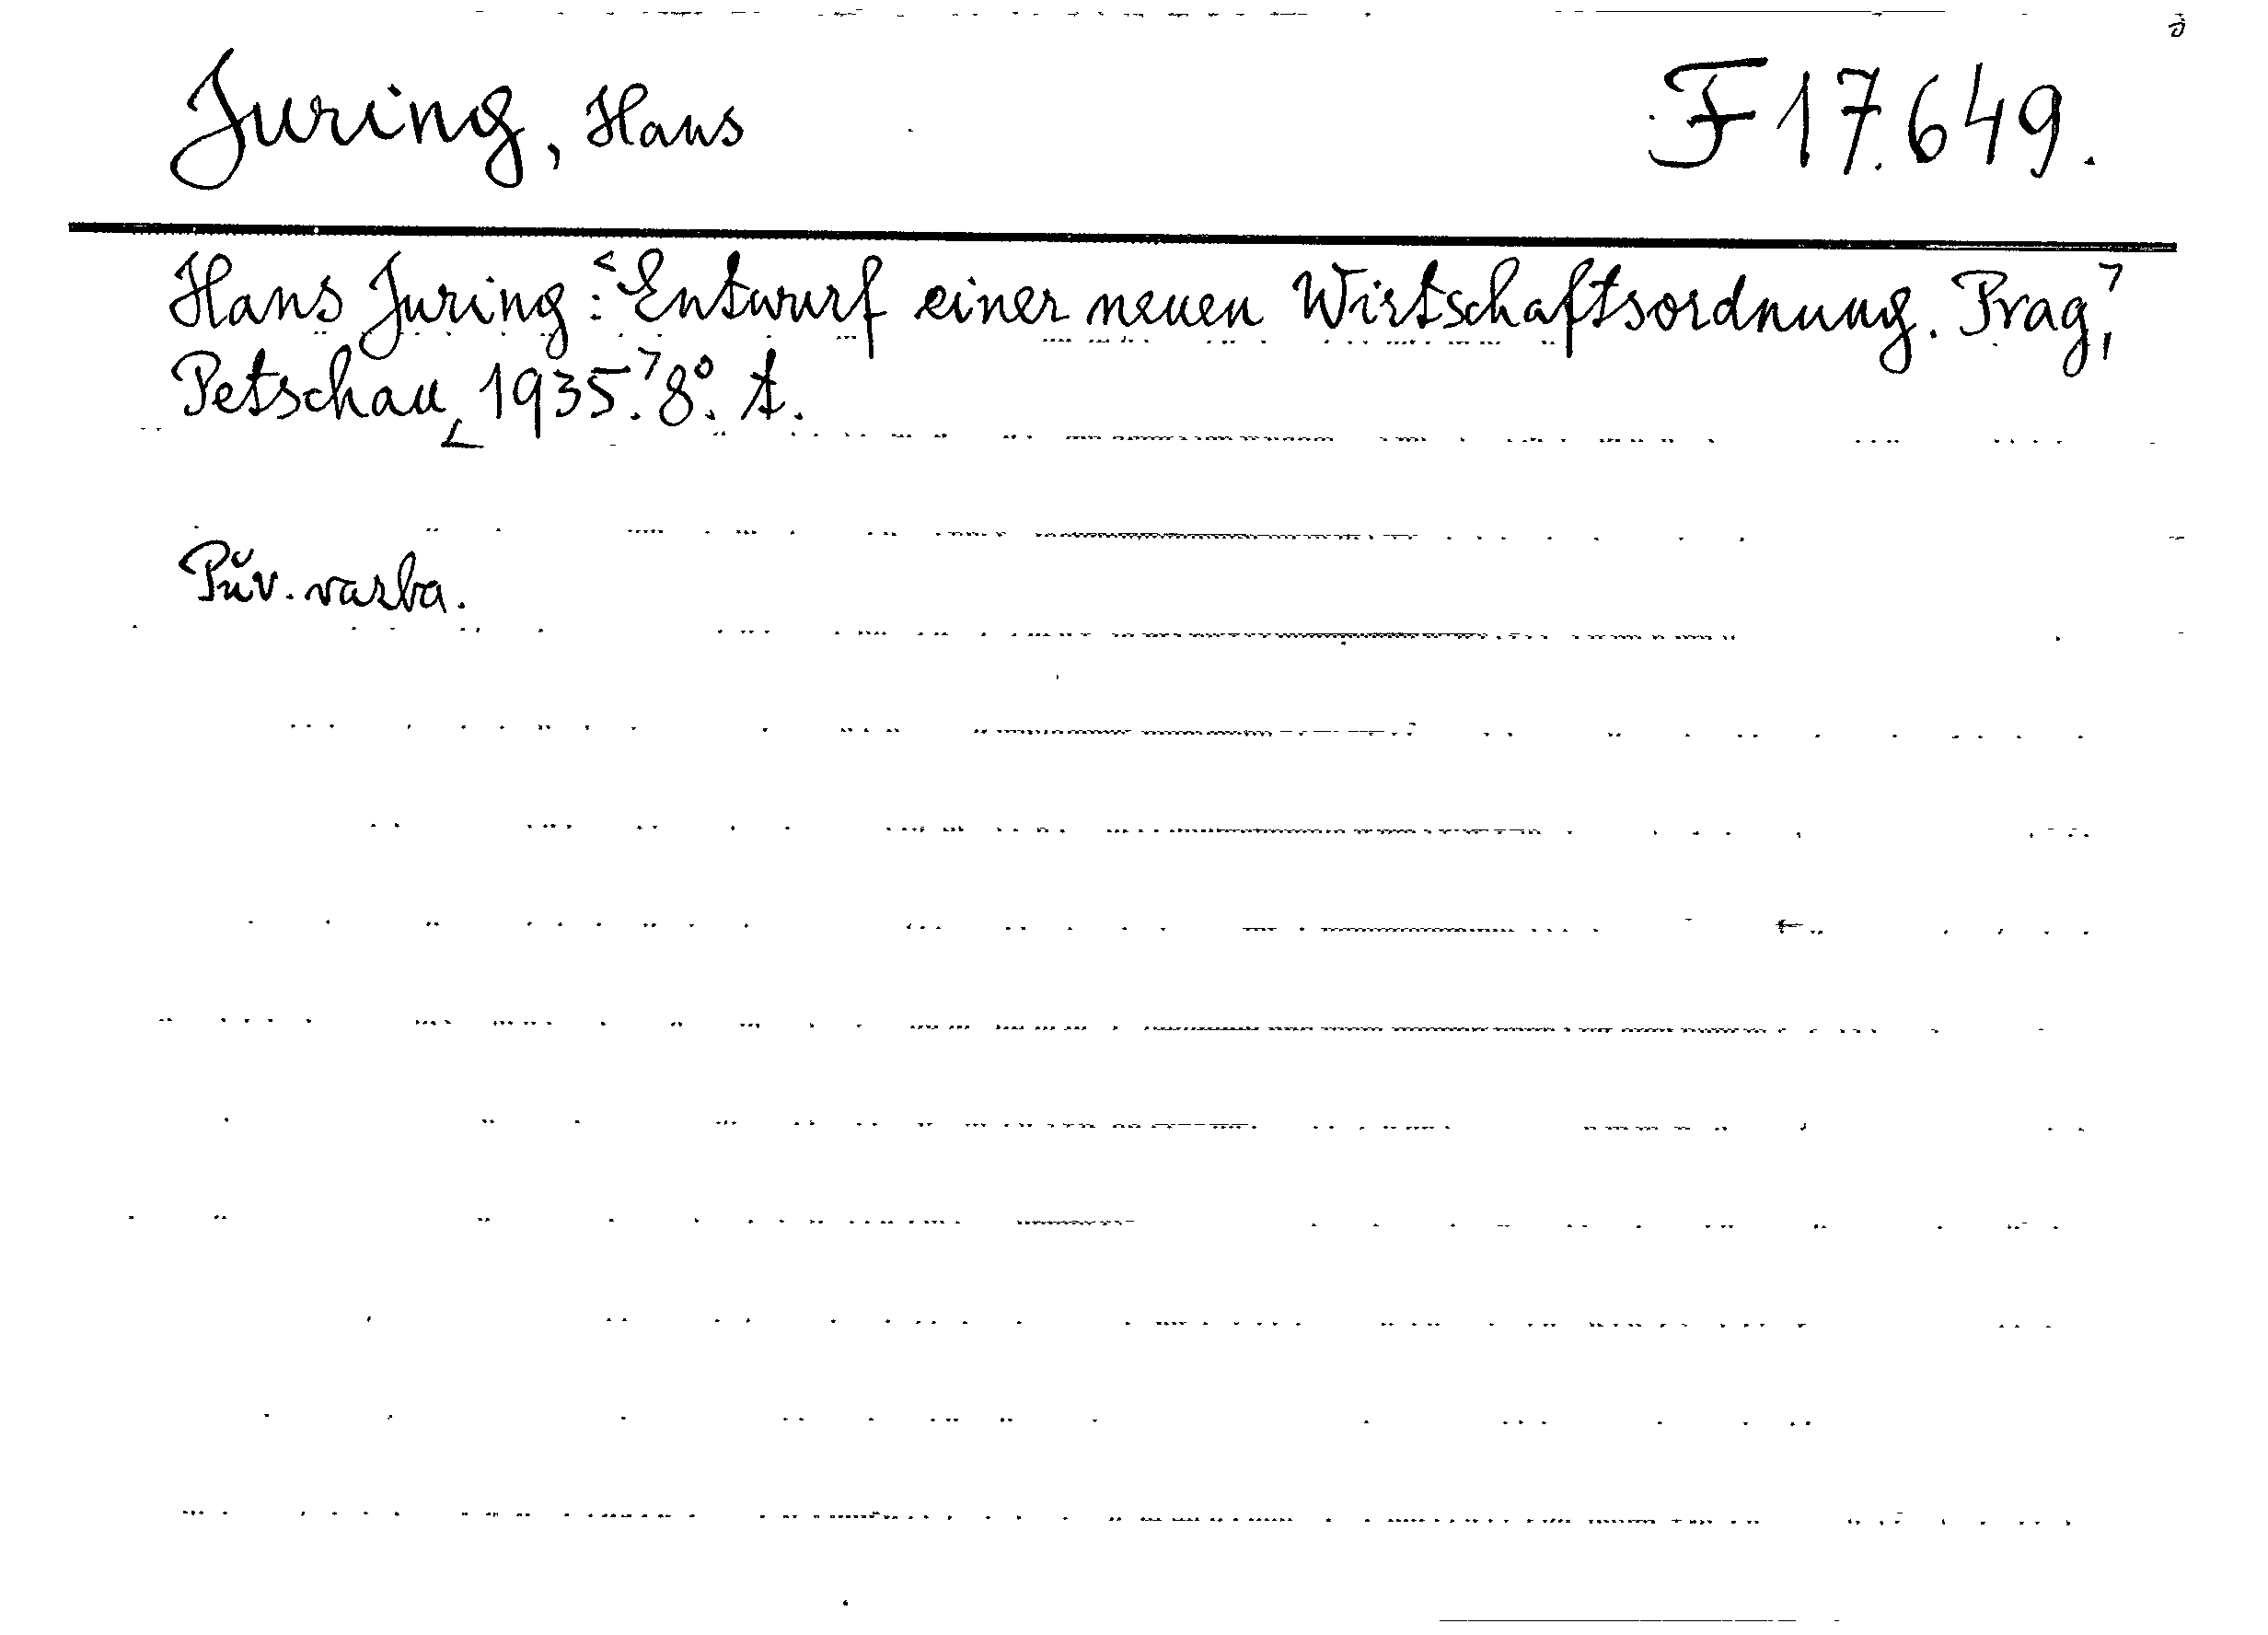 Juring, Hans F 17.649.
Hans Juring: <Entwurf einer neuen Wirtschaftsordnung. Prag,>
Petschau <1935.> 8°. A.
Pův. vazba.